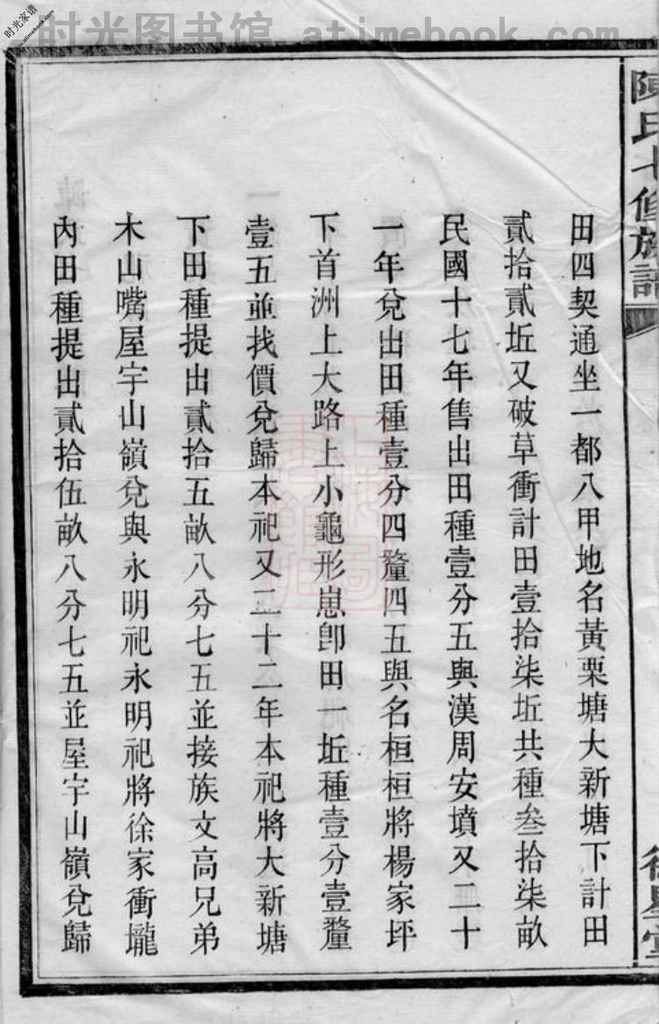 时光图书馆 atimebook.com
时光家谱
陳氏七修族譜
田四契通坐一都八甲地名黃栗塘大新塘下計田
貳拾貳坵又破草衝計田壹拾柒坵共種叁拾柒畝
民國十七年售出田種壹分五與漢周安墳又二十
一年兌出田種壹分四釐四五與名桓桓將楊家坪
下首洲上大路上小龜形崽卽田一坵種壹分壹釐
壹五並找價兌歸本祀又二十二年本祀將大新塘
下田種提出貳拾五畝八分七五並接族文高兄弟
木山嘴屋宇山嶺兌與永明祀永明祀將徐家衝壠
內田種提出貳拾伍畝八分七五並屋宇山嶺兌歸